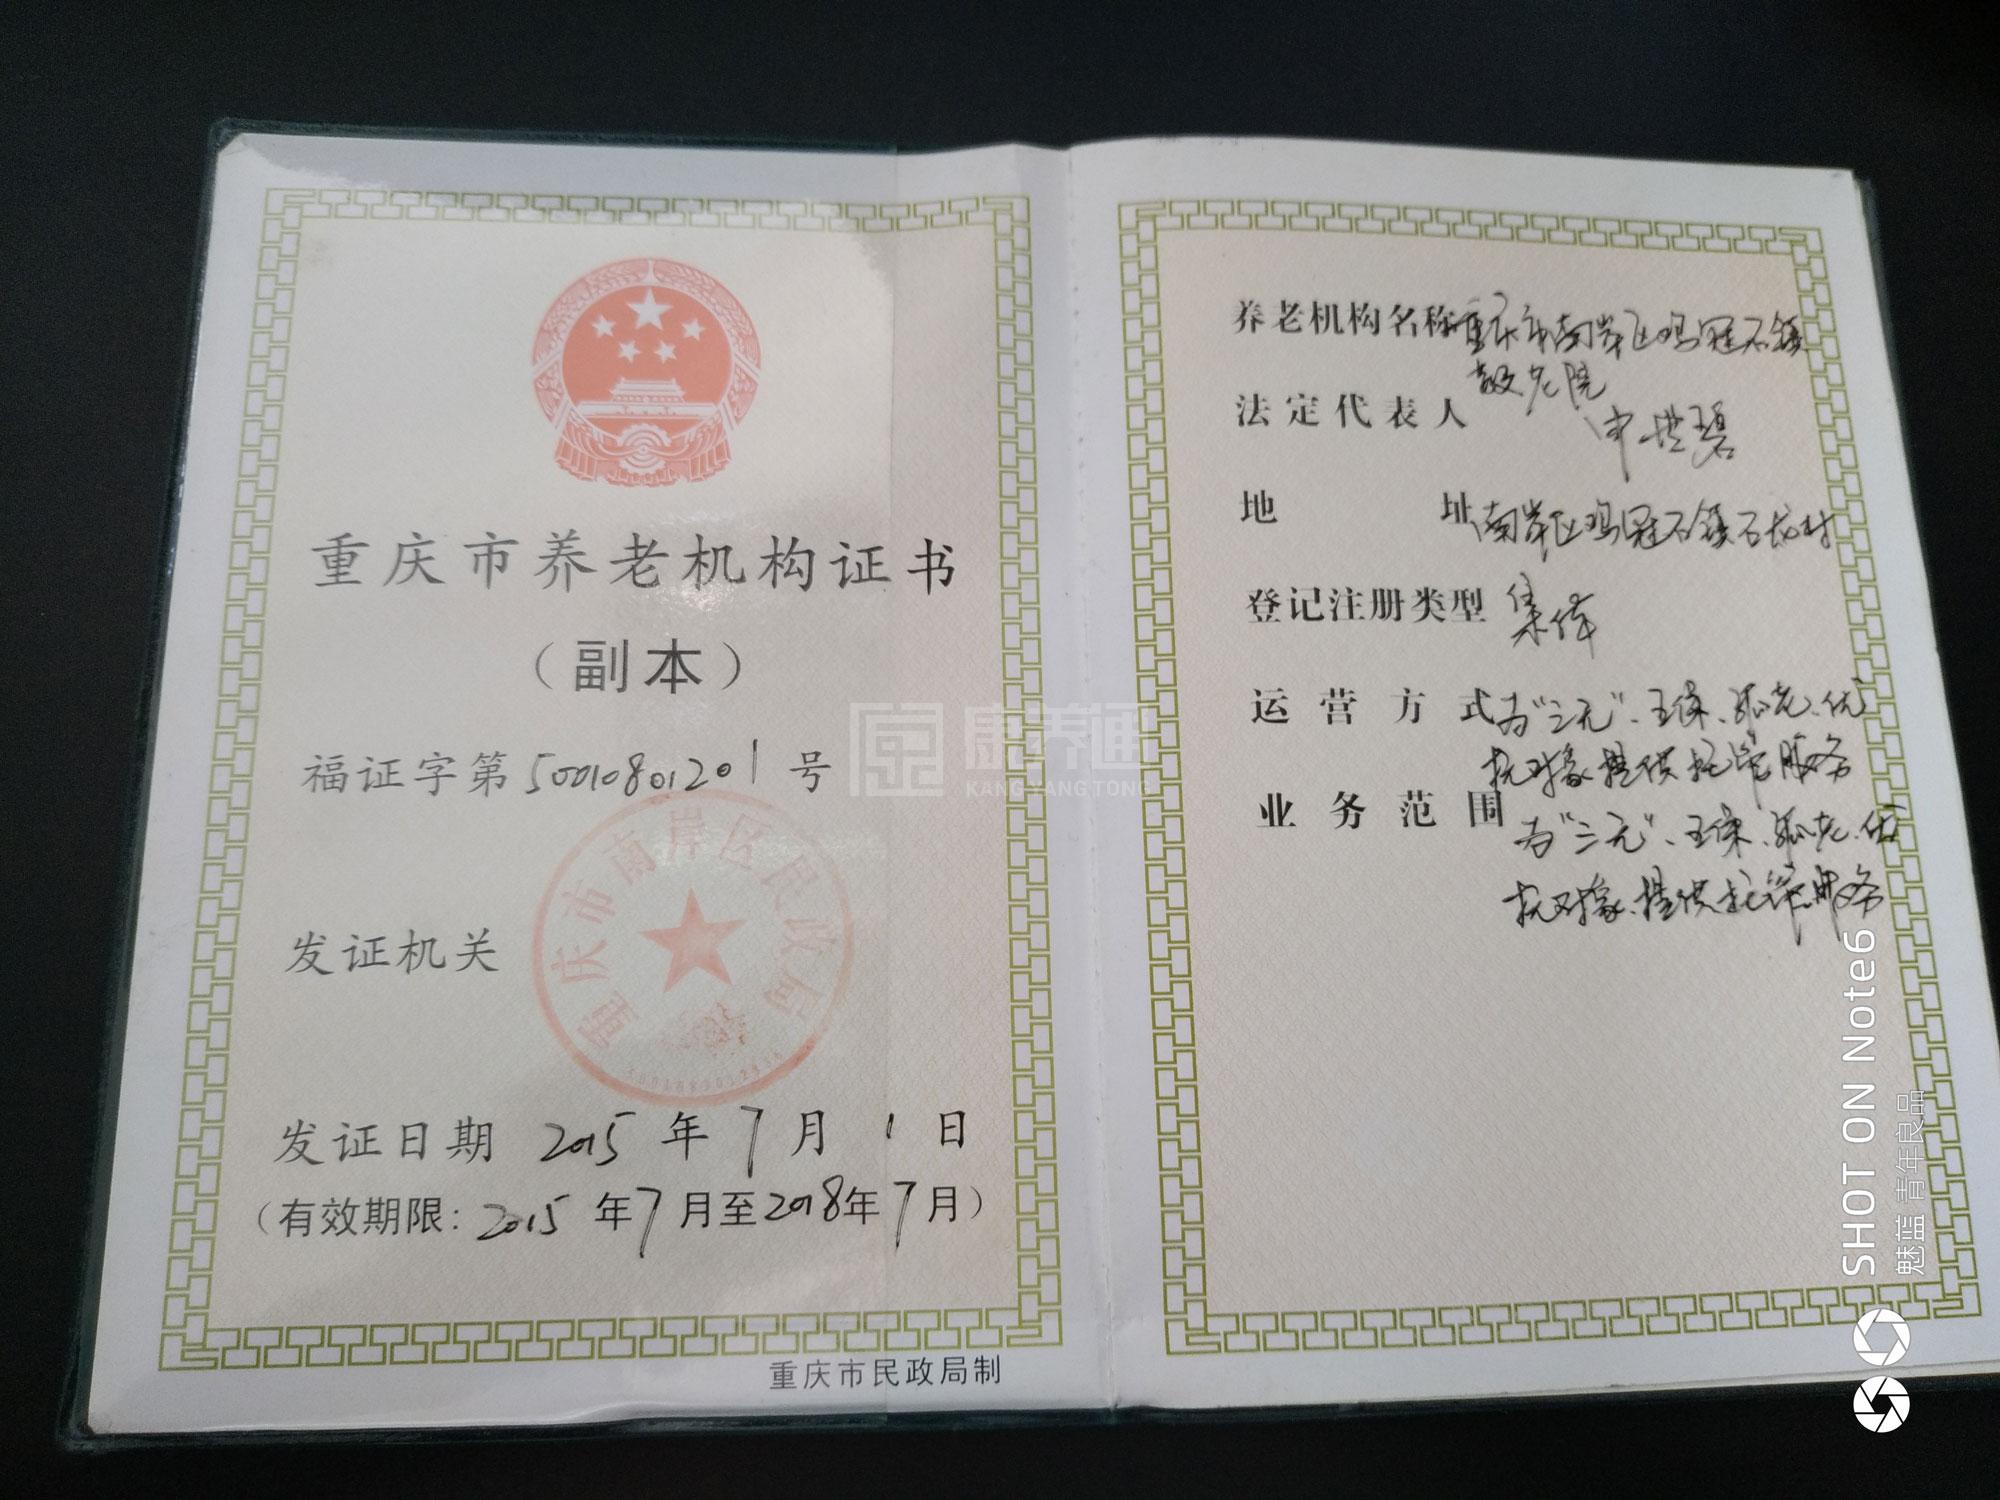 重庆市养老机构证书
(副本)
福证字第50010801201号
发证机关
重庆市南岸区民政局
发证日期 2015年7月1日
(有效期限:2015年7月至2018年7月)
重庆市民政局制
养老机构名称 重庆市南岸区鸡冠石镇
敬老院
法定代表人 申世碧
地址 南岸区鸡冠石镇石龙村
登记注册类型 集体
运营方式 为"三无"、五保、孤老、优
抚对象提供托管服务
业务范围 为"三无"、五保、孤老、优
抚对象、提供托管服务
康养通
KANG YANG TONG
SHOT ON Note6
魅蓝 青年良品